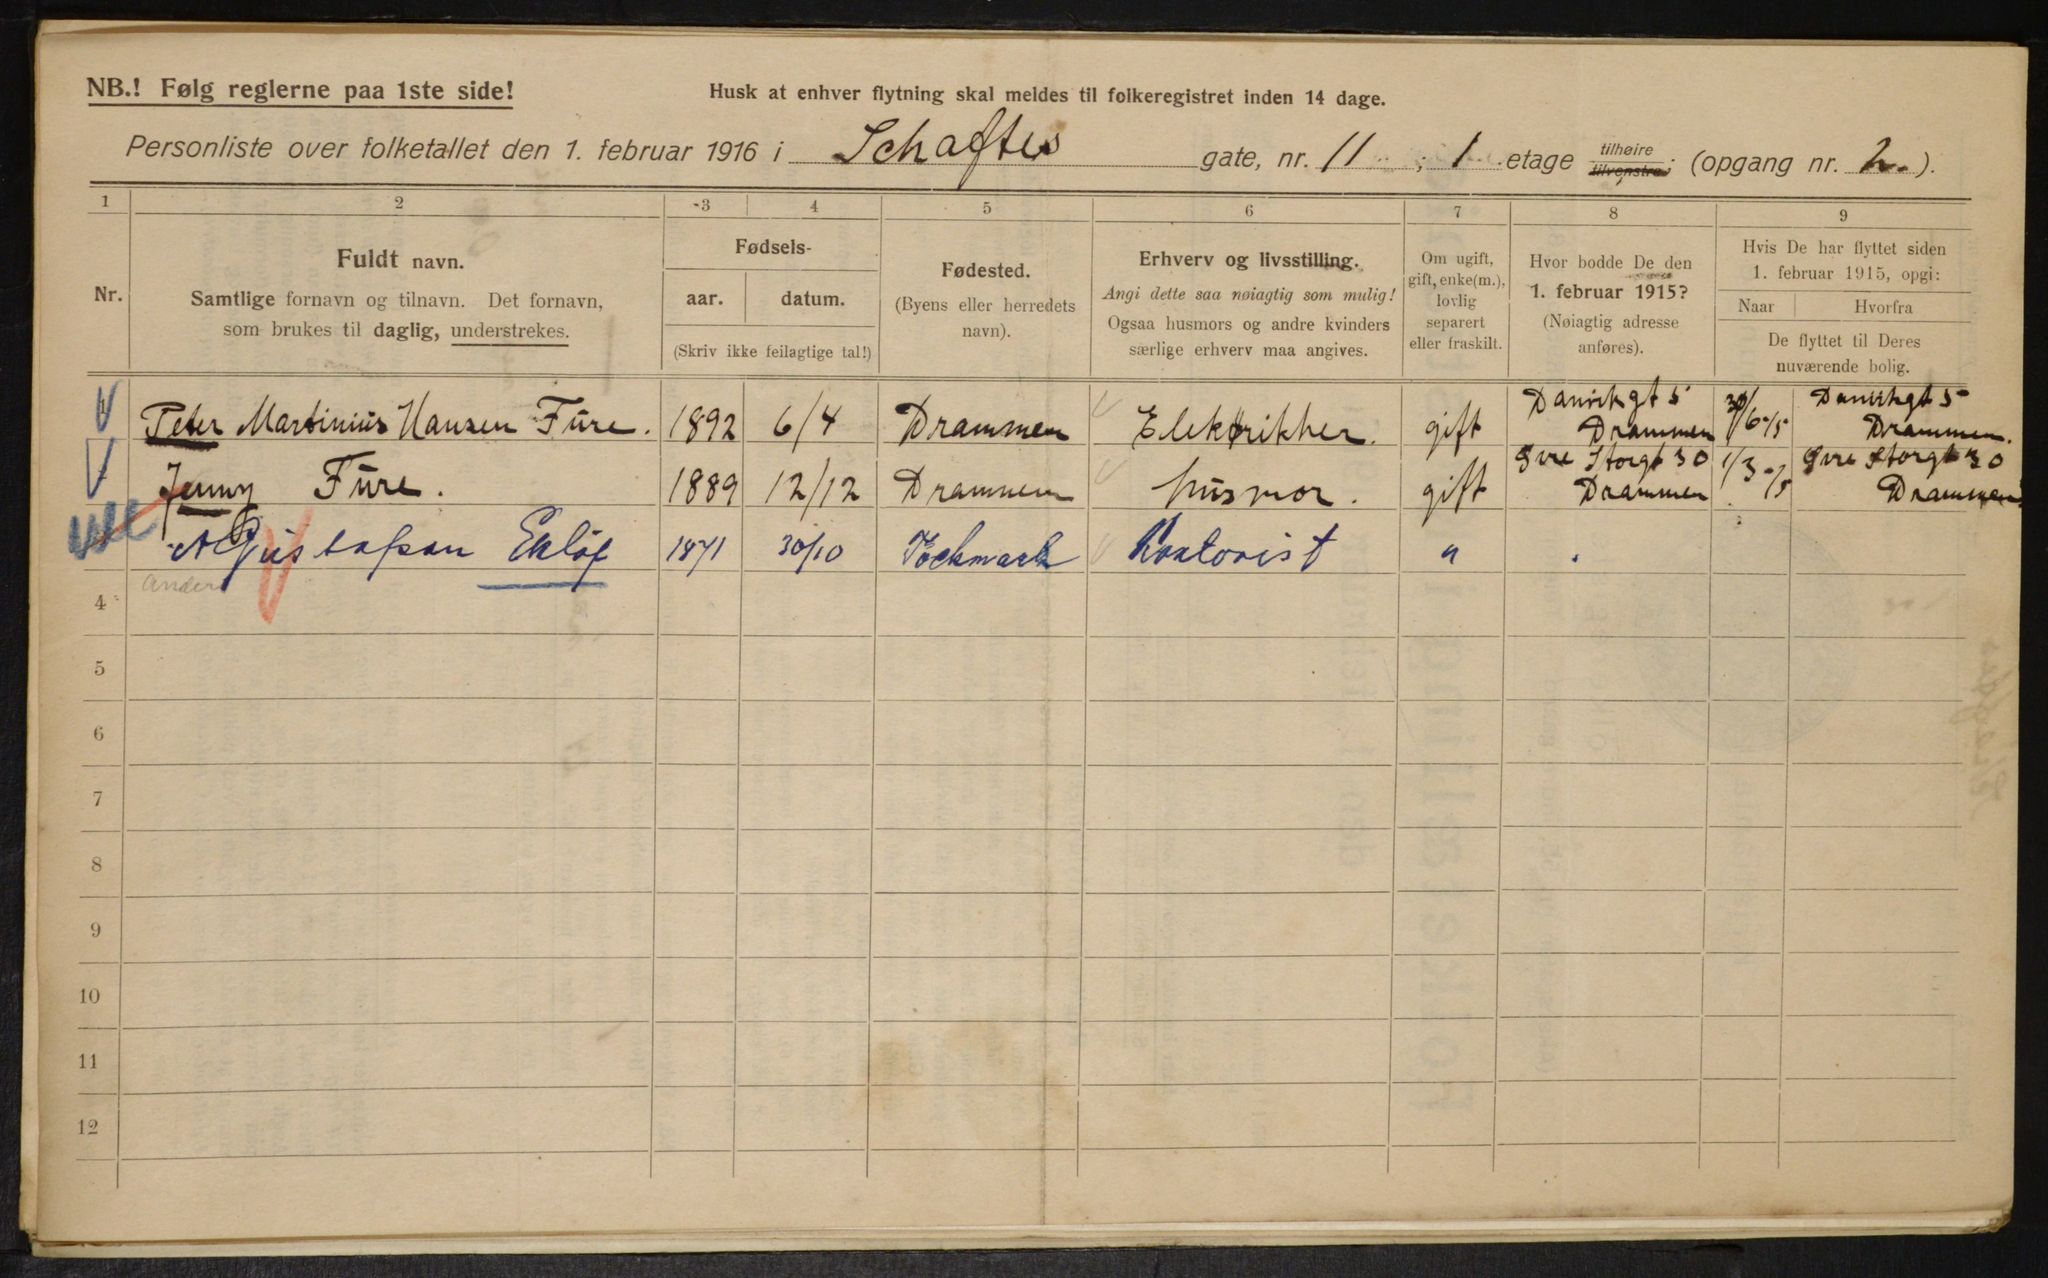 NB.! Følg reglerne paa 1ste side!
Husk at enhver flytning skal meldes til folkeregistret inden 14 dage.
Personliste over folketallet den 1. februar 1916 i Schaftes gate, nr. 11 ; 1 etage tilhøire tilvenstre; (opgang nr. 2.).
1 2 3 4 5 6 7 8 9
Nr.
Fuldt navn.
Samtlige fornavn og tilnavn. Det fornavn,
som brukes til daglig, understrekes.
Fødsels-
aar. datum.
(Skriv ikke feilagtige tal!)
Fødested.
(Byens eller herredets
navn).
Erhverv og livsstilling.
Angi dette saa nøiagtig som mulig!
Ogsaa husmors og andre kvinders
særlige erhverv maa angives.
Om ugift,
gift, enke(m.),
lovlig
separert
eller fraskilt.
Hvor bodde De den
1. februar 1915?
(Nøiagtig adresse
anføres).
Hvis De har flyttet siden
1. februar 1915, opgi:
Naar Hvorfra
De flyttet til Deres
nuværende bolig.
Peter Martinius Hansen Füre. 1892 6/4 Drammen Elektrikker. gift Danvikgt 5 Drammen 30/6-15 Danvikgt 5 Drammen.
Jenny Füre. 1889 12/12 Drammen husmor. gift Øvre Storgt 30 Drammen 1/3-15 Øvre Storgt 30 Drammen
A Gustafson Eklöf 1871 30/10 Kontorist "
Anders
4
5
6
7
8
9
10
11
12